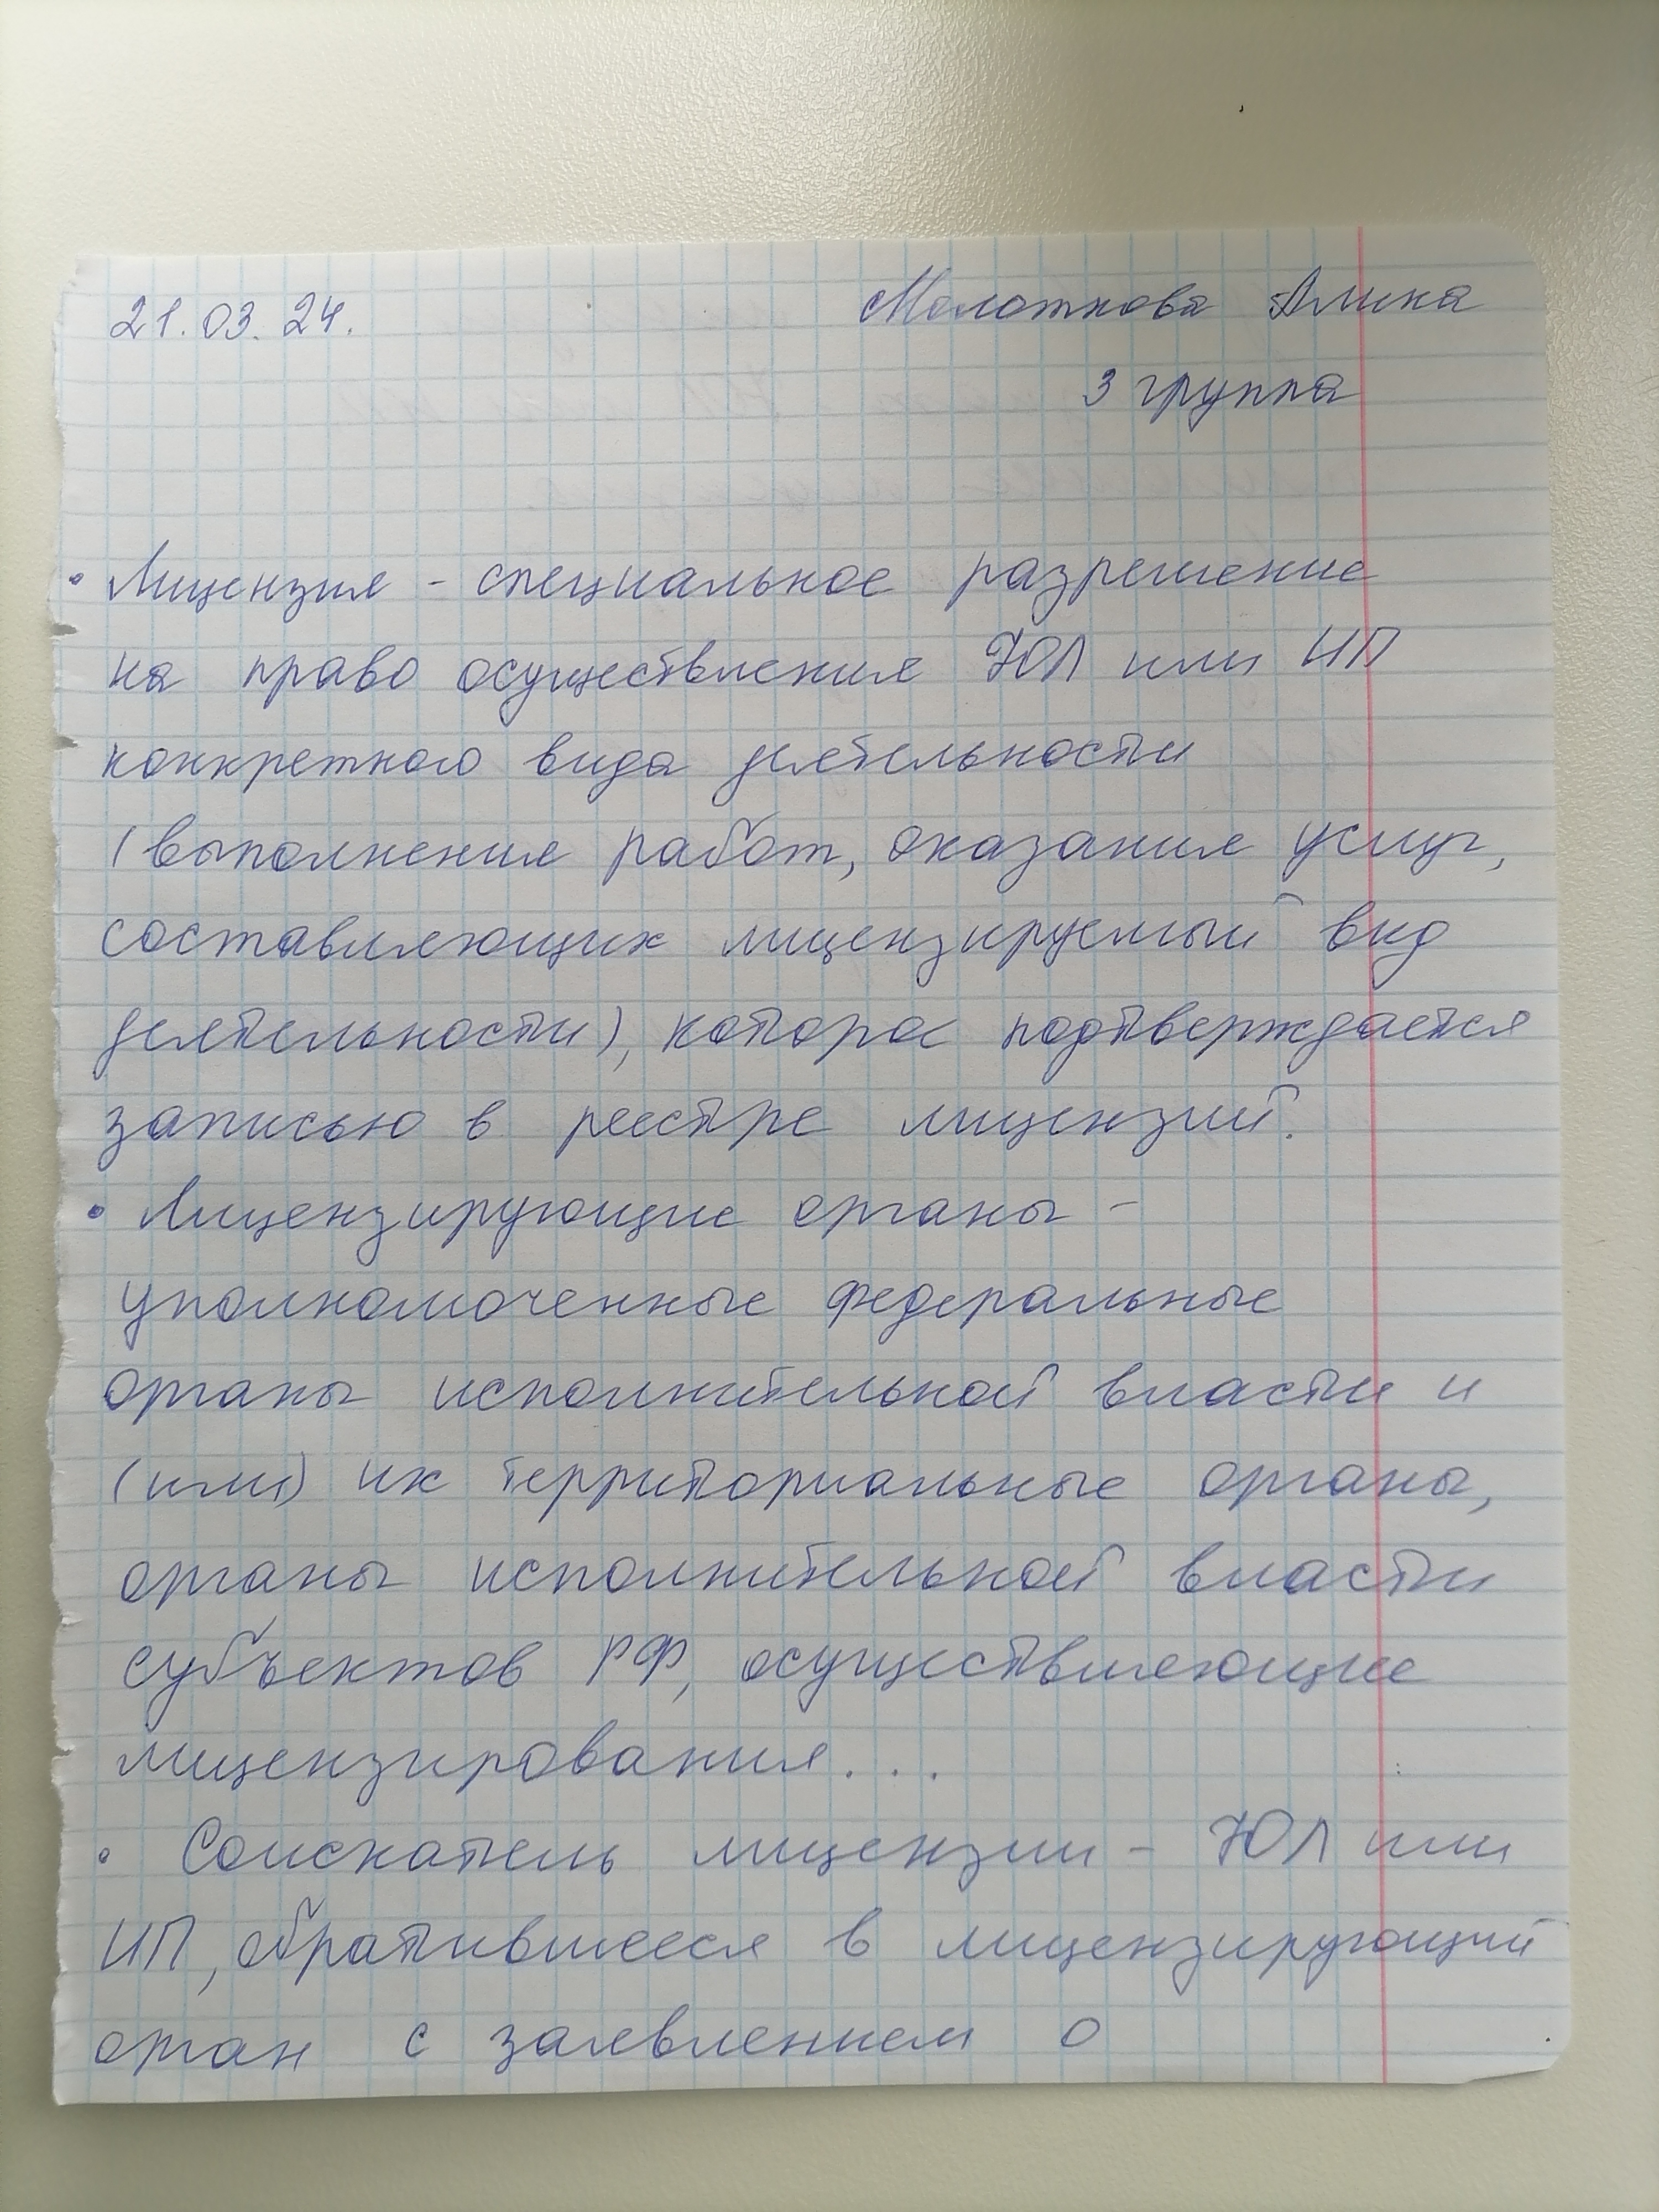 21.03.24. Молоткова Алина
3 группа
• Лицензия - специальное разрешение
на право осуществления ЮЛ или ИП
конкретного вида деятельности
(выполнения работ, оказания услуг,
составляющих лицензируемый вид
деятельности), которое подтверждается
записью в реестре лицензий.
• Лицензирующие органы -
уполномоченные федеральные
органы исполнительной власти и
(или) их территориальные органы,
органы исполнительной власти
субъектов РФ, осуществляющие
лицензирования...
• Соискатель лицензии - ЮЛ или
ИП, обратившееся в лицензирующий
орган с заявлением о